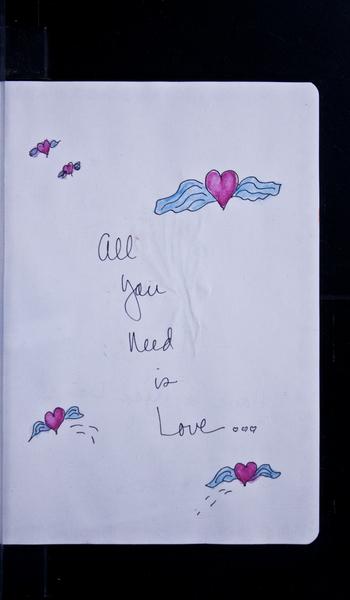 All
you
need
is
Love...